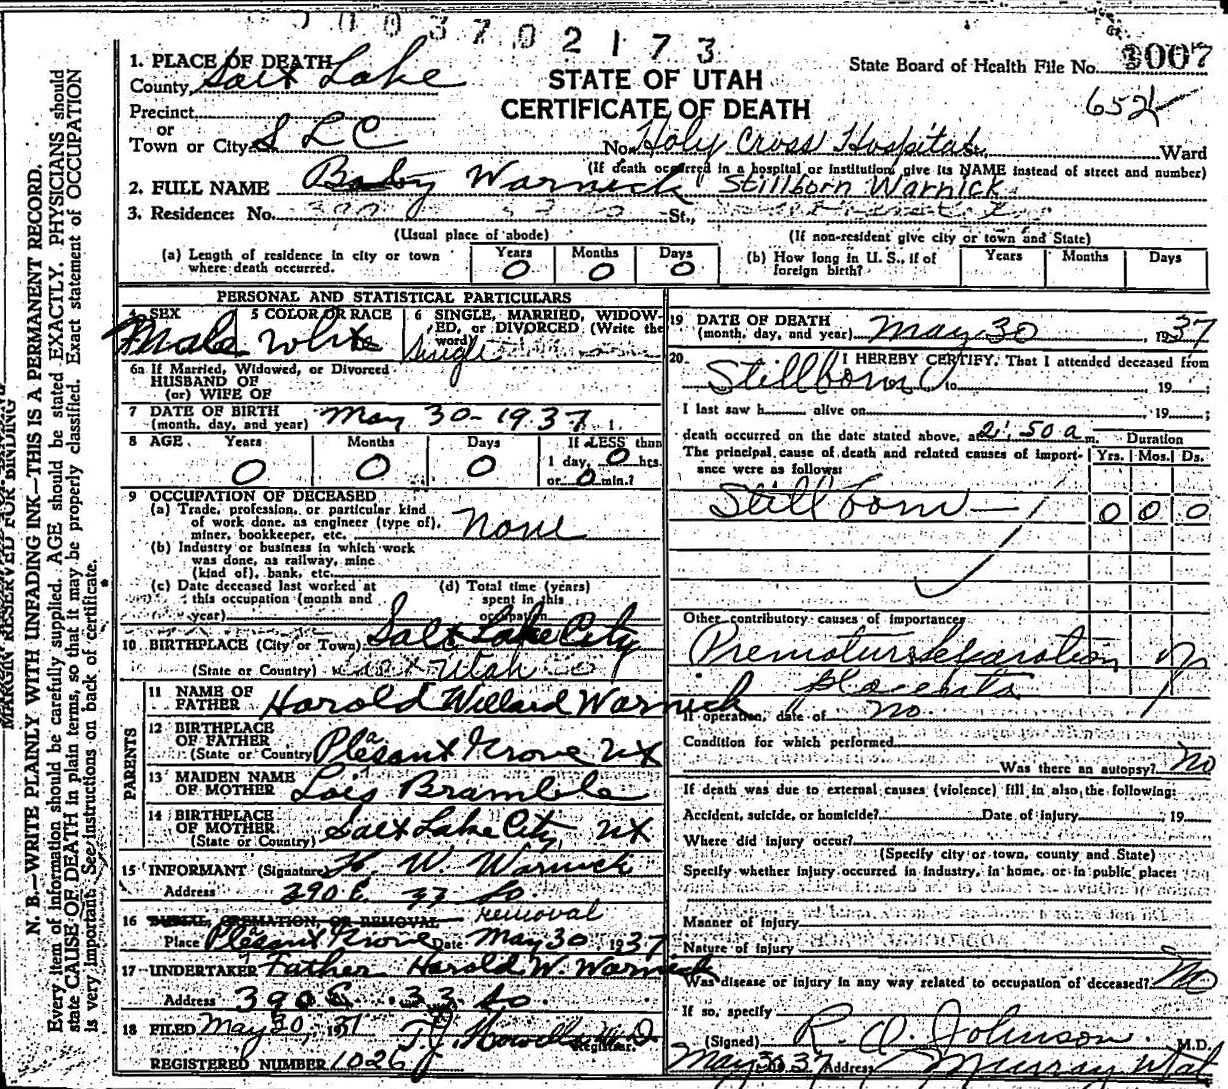 0003702173
1. PLACE OF DEATH
County Salt Lake
STATE OF UTAH
CERTIFICATE OF DEATH
State Board of Health File No. 3007
652
Precinct
or
Town or City S L C No. Holy Cross Hospital St., Ward
(If death occurred in a hospital or institution, give its NAME instead of street and number)
2. FULL NAME Baby Warnick Stillborn Warnick
3. Residence: No. 390 St.,
(Usual place of abode) (If non-resident give city or town and State)
(a) Length of residence in city or town where death occurred. Years 0 Months 0 Days 0
(b) How long in U. S., if of foreign birth? Years Months Days
PERSONAL AND STATISTICAL PARTICULARS
4 SEX Male
5 COLOR OR RACE White
6 SINGLE, MARRIED, WIDOWED, or DIVORCED (Write the word) Single
6a If Married, Widowed, or Divorced
HUSBAND OF
(or) WIFE OF
7 DATE OF BIRTH
(month, day, and year) May 30 - 1937
8 AGE Years 0 Months 0 Days 0 If LESS than 1 day, 0 hrs. or 0 min.?
9 OCCUPATION OF DECEASED
(a) Trade, profession, or particular kind
of work done, as engineer (type of),
miner, bookkeeper, etc. none
(b) Industry or business in which work
was done, as railway, mine
(kind of), bank, etc.
(c) Date deceased last worked at
this occupation (month and
year)
(d) Total time (years)
spent in this
occupation
10 BIRTHPLACE (City or Town) Salt Lake City
(State or Country) Utah
PARENTS
11 NAME OF
FATHER Harold Willard Warnick
12 BIRTHPLACE
OF FATHER
(State or Country) Pleasant Grove Ut
13 MAIDEN NAME
OF MOTHER Lois Bramble
14 BIRTHPLACE
OF MOTHER
(State or Country) Salt Lake City, Ut
15 INFORMANT (Signature) H. W. Warnick
Address 390 E. 33 So.
16 BURIAL, CREMATION, OR REMOVAL removal
Place Pleasant Grove Date May 30, 1937
17 UNDERTAKER Father Harold W. Warnick
Address 390 E. 33 So.
18 FILED May 30, 1937 T.J. Howells M.D.
Registrar.
REGISTERED NUMBER 1026
19 DATE OF DEATH
(month, day, and year) May 30, 1937
20. I HEREBY CERTIFY, That I attended deceased from
Stillborn to 19 ;
I last saw h alive on , 19 ;
death occurred on the date stated above, at 2:50 a m.
The principal cause of death and related causes of importance were as follows:
Duration
Yrs. Mos. Ds.
Stillborn 0 0 0
Other contributory causes of importance
Premature separation of
placenta
If operation, date of no
Condition for which performed
Was there an autopsy? No
If death was due to external causes (violence) fill in also the following:
Accident, suicide, or homicide? Date of injury , 19
Where did injury occur?
(Specify city or town, county and State)
Specify whether injury occurred in industry, in home, or in public place:
Manner of injury
Nature of injury
Was disease or injury in any way related to occupation of deceased? No
If so, specify
(Signed) R. A. Johnson M.D.
May 30 37 Address Murray Utah
MARGIN RESERVED FOR BINDING
N. B.—WRITE PLAINLY WITH UNFADING INK—THIS IS A PERMANENT RECORD.
Every item of information should be carefully supplied. AGE should be stated EXACTLY. PHYSICIANS should
state CAUSE OF DEATH in plain terms, so that it may be properly classified. Exact statement of OCCUPATION
is very important. See instructions on back of certificate.